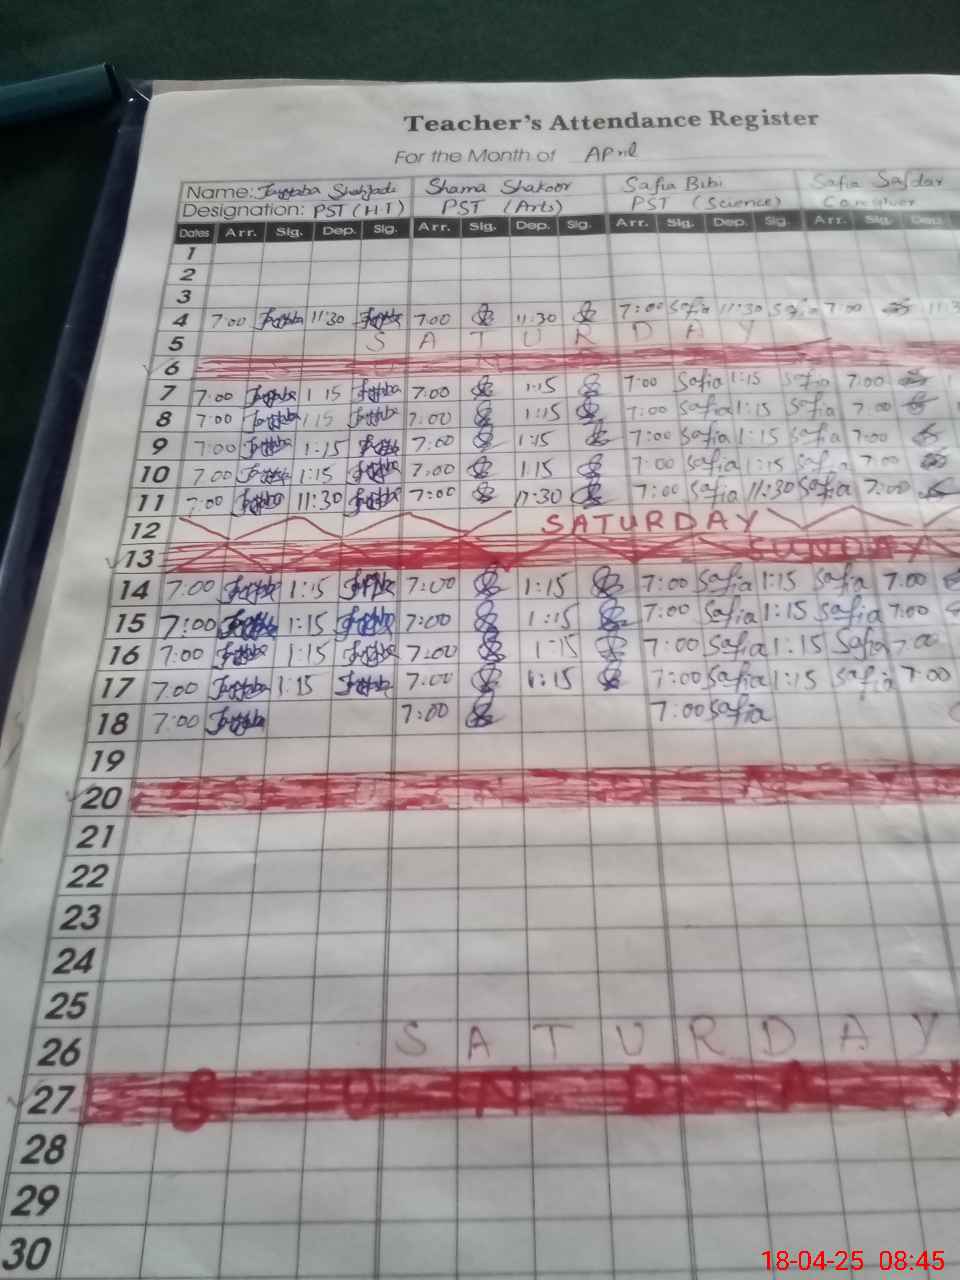 Teacher's Attendance Register
For the Month of April
Name: Shahjadi Shama Shakoor Safia Bibi Safia Safdar
Designation: PST (H.T) PST (Arts) PST (Science) Caregiver
Dates Arr. Sig. Dep. Sig. Arr. Sig. Dep. Sig. Arr. Sig. Dep. Sig. Arr. Sig. Dep.
1
2
3
4 7:00 11:30 7:00 11:30 7:00 Safia 11:30 Safia 7:00
5 SATURDAY
6
7 7:00 1:15 7:00 1:15 7:00 Safia 1:15 Safia 7:00
8 7:00 1:15 7:00 1:15 7:00 Safia 1:15 Safia 7:00
9 7:00 1:15 7:00 1:15 7:00 Safia 1:15 Safia 7:00
10 7:00 1:15 7:00 1:15 7:00 Safia 1:15 Safia 7:00
11 7:00 11:30 7:00 11:30 7:00 Safia 11:30 Safia 7:00
12 SATURDAY
13 SUNDAY
14 7:00 1:15 7:00 1:15 7:00 Safia 1:15 Safia 7:00
15 7:00 1:15 7:00 1:15 7:00 Safia 1:15 Safia 7:00
16 7:00 1:15 7:00 1:15 7:00 Safia 1:15 Safia 7:00
17 7:00 1:15 7:00 1:15 7:00 Safia 1:15 Safia 7:00
18 7:00 7:00 7:00 Safia
19
20
21
22
23
24
25
26 SATURDAY
27 SUNDAY
28
29
30
18-04-25 08:45